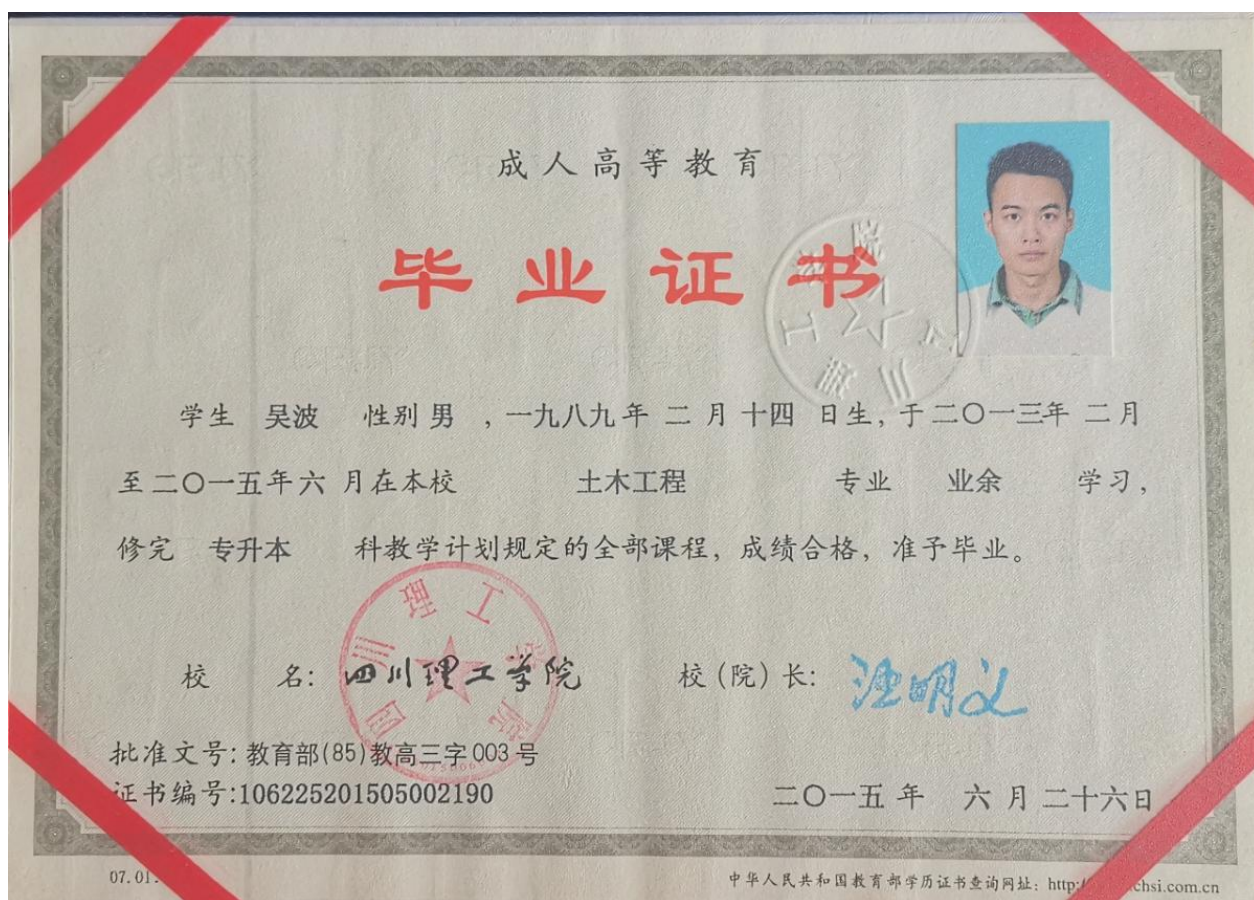 成人高等教育
毕业证书
学生 吴波 性别 男 ，一九八九年 二 月 十四 日生，于二〇一三年 二月
至二〇一五年六 月在本校 土木工程 专业 业余 学习，
修完 专升本 科教学计划规定的全部课程，成绩合格，准予毕业。
校 名：四川理工学院 校（院）长：
四川理工学院
四川理工学院
批准文号：教育部(85)教高三字 003 号
证书编号:106225201505002190 二〇一五 年 六 月 二十六日
07.01. 中华人民共和国教育部学历证书查询网址：http:// chsi.com.cn